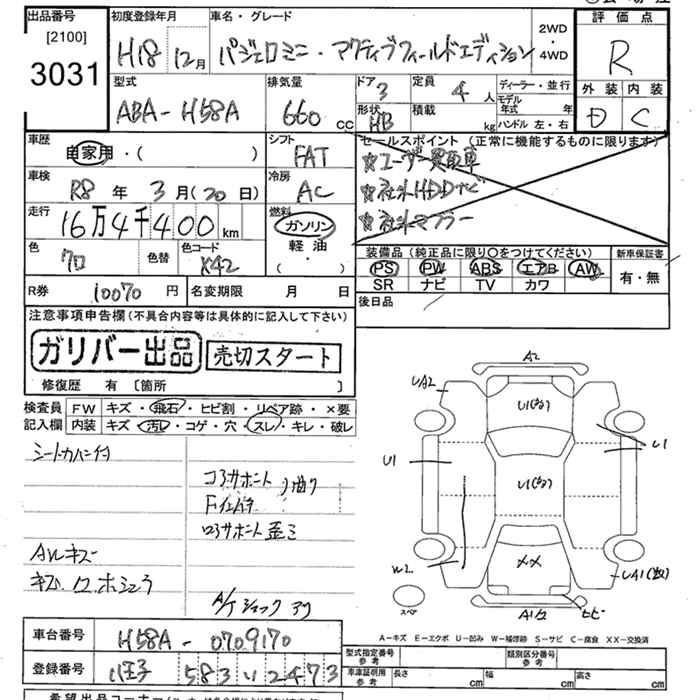 出品番号
[2100]
3031
初度登録年月
H18 12月
車名・グレード
パジェロミニ・アクティブフィールドエディション
2WD・4WD
評価点
R
外装 内装
D C
型式
ABA-H58A
排気量
660 cc
ドア 3
定員 4 人
形状 HB
積載 kg
ディーラー・並行
モデル年式 年
ハンドル 左・右
車歴
自家用・( )
シフト
FAT
セールスポイント (正常に機能するものに限ります)
☆ユーザー買取車
☆社外HDDナビ
☆社外マフラー
車検
R8 年 3 月 (20 日)
冷房
AC
走行
16万4千400 km
燃料
ガソリン
軽油
( )
色
クロ
色替
色コード
X42
装備品 (純正品に限り○をつけてください)
PS PW ABS エアB AW
SR ナビ TV カワ
新車保証書
有・無
R券 10070 円
名変期限 月 日
後日品
注意事項申告欄 (不具合内容等は具体的に記入して下さい)
ガリバー出品
売切スタート
修復歴 有 〔箇所 〕
検査員記入欄
FW キズ・飛石・ヒビ割・リペア跡・×要
内装 キズ・汚レ・コゲ・穴・スレ・キレ・破レ
シートカバー付
コアサポート
曲り
コアサポート歪ミ
AWキズ
A2
UA2
U1
U1
U1
W2
××
UA1
A1
ヒビ
スペア
A-キズ E-エクボ U-凹み W-補修跡 S-サビ C-腐食 XX-交換済
車台番号
H58A-0709170
登録番号
八王子 583 い 2473
型式指定番号 参考
類別区分番号 参考
車庫証明用 参考
長さ cm
幅 cm
高さ cm